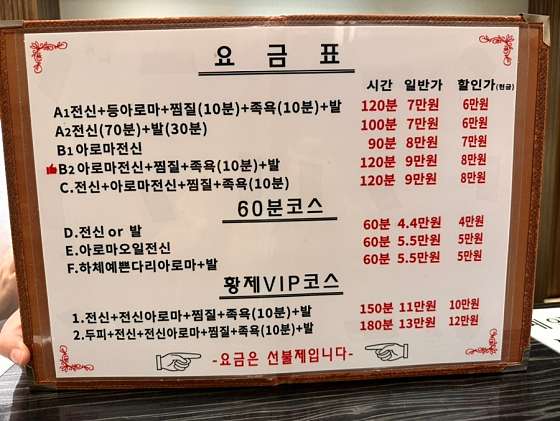 요 금 표
시간 일반가 할인가(현금)
A1전신+등아로마+찜질(10분)+족욕(10분)+발 120분 7만원 6만원
A2전신(70분)+발(30분) 100분 7만원 6만원
B1아로마전신 90분 8만원 7만원
B2아로마전신+찜질+족욕(10분)+발 120분 9만원 8만원
C.전신+아로마전신+찜질+족욕(10분) 120분 9만원 8만원
60분코스
D.전신 or 발 60분 4.4만원 4만원
E.아로마오일전신 60분 5.5만원 5만원
F.하체예쁜다리아로마+발 60분 5.5만원 5만원
황제VIP코스
1.전신+전신아로마+찜질+족욕(10분)+발 150분 11만원 10만원
2.두피+전신+전신아로마+찜질+족욕(10분)+발 180분 13만원 12만원
-요금은 선불제입니다-